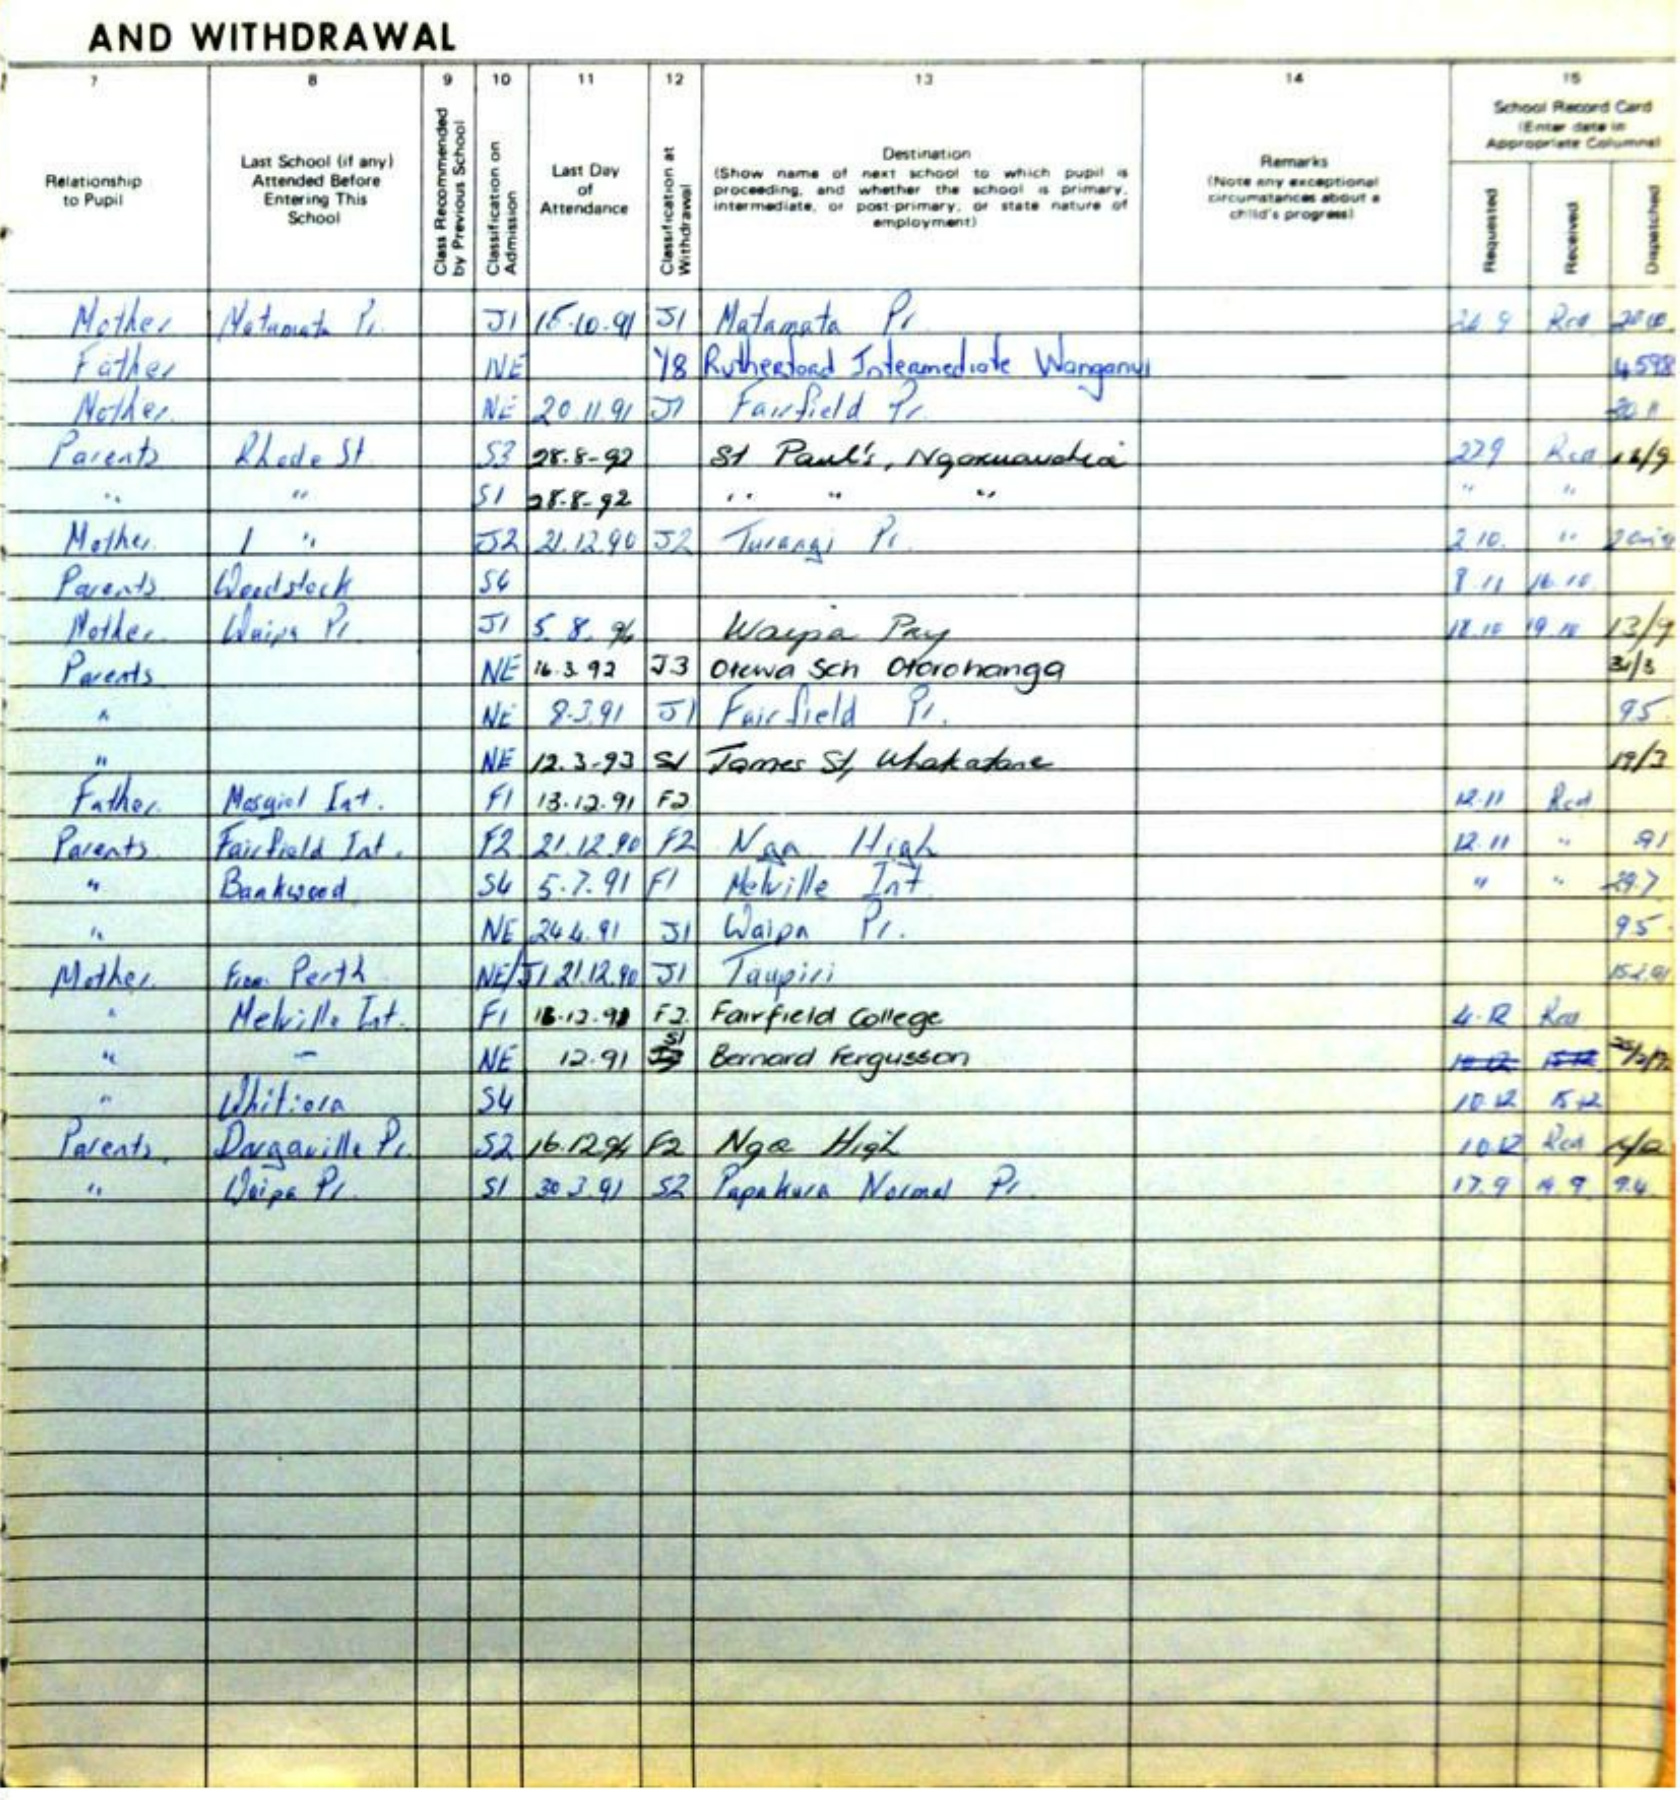 AND WITHDRAWAL
7 8 9 10 11 12 13 14 15
Relationship to Pupil
Last School (if any) Attended Before Entering This School
Class Recommended by Previous School
Classification on Admission
Last Day of Attendance
Classification at Withdrawal
Destination
(Show name of next school to which pupil is proceeding, and whether the school is primary, intermediate, or post-primary, or state nature of employment)
Remarks
(Note any exceptional circumstances about a child's progress)
School Record Card
(Enter date in Appropriate Columns)
Requested Received Dispatched
Mother Matamata Pr. J1 15.10.91 J1 Matamata Pr. Rcd
Father NE Y8 Rutherford Intermediate Wanganui 4598
Mother NE 20.11.91 J1 Fairfield Pr. 20.11
Parents Rhode St S3 28.8-92 St Paul's, Ngaruawahia 27.9 Rcd
" " S1 28.8-92 " " " " "
Mother " J2 21.12.90 J2 Turangi Pr. 2.10. "
Parents Woodstock S4 8.11 16.10
Mother Waipa Pr. J1 5.8.94 Waipa Pry 18.10 19.10 13/9
Parents NE 16.3.92 J3 Otewa Sch Otorohanga 31/3
" NE 8.3.91 J1 Fairfield Pr. 95
" NE 12.3-93 S1 James St, Whakatane 19/3
Father Mosgiel Int. F1 13.12.91 F2 12.11 Rcd
Parents Fairfield Int. F2 21.12.90 F2 Nga High 12.11 " 91
" Bankwood S4 5.7.91 F1 Melville Int. " " 29.7
" NE 24.4.91 J1 Waipa Pr. 95
Mother From Perth NE/J1 21.12.90 J1 Taupiri 15.2.91
" Melville Int. F1 F2 Fairfield College 4.12 Rcd
" – NE 12.91 S1 Bernard Fergusson
" Whitiora S4 10.12 15.12
Parents Dargaville Pr. S2 16.12.94 F2 Nga High 10.12 Rcd
" Waipa Pr. S1 30.3.91 S2 Papakura Normal Pr. 17.9 19.9 9.4